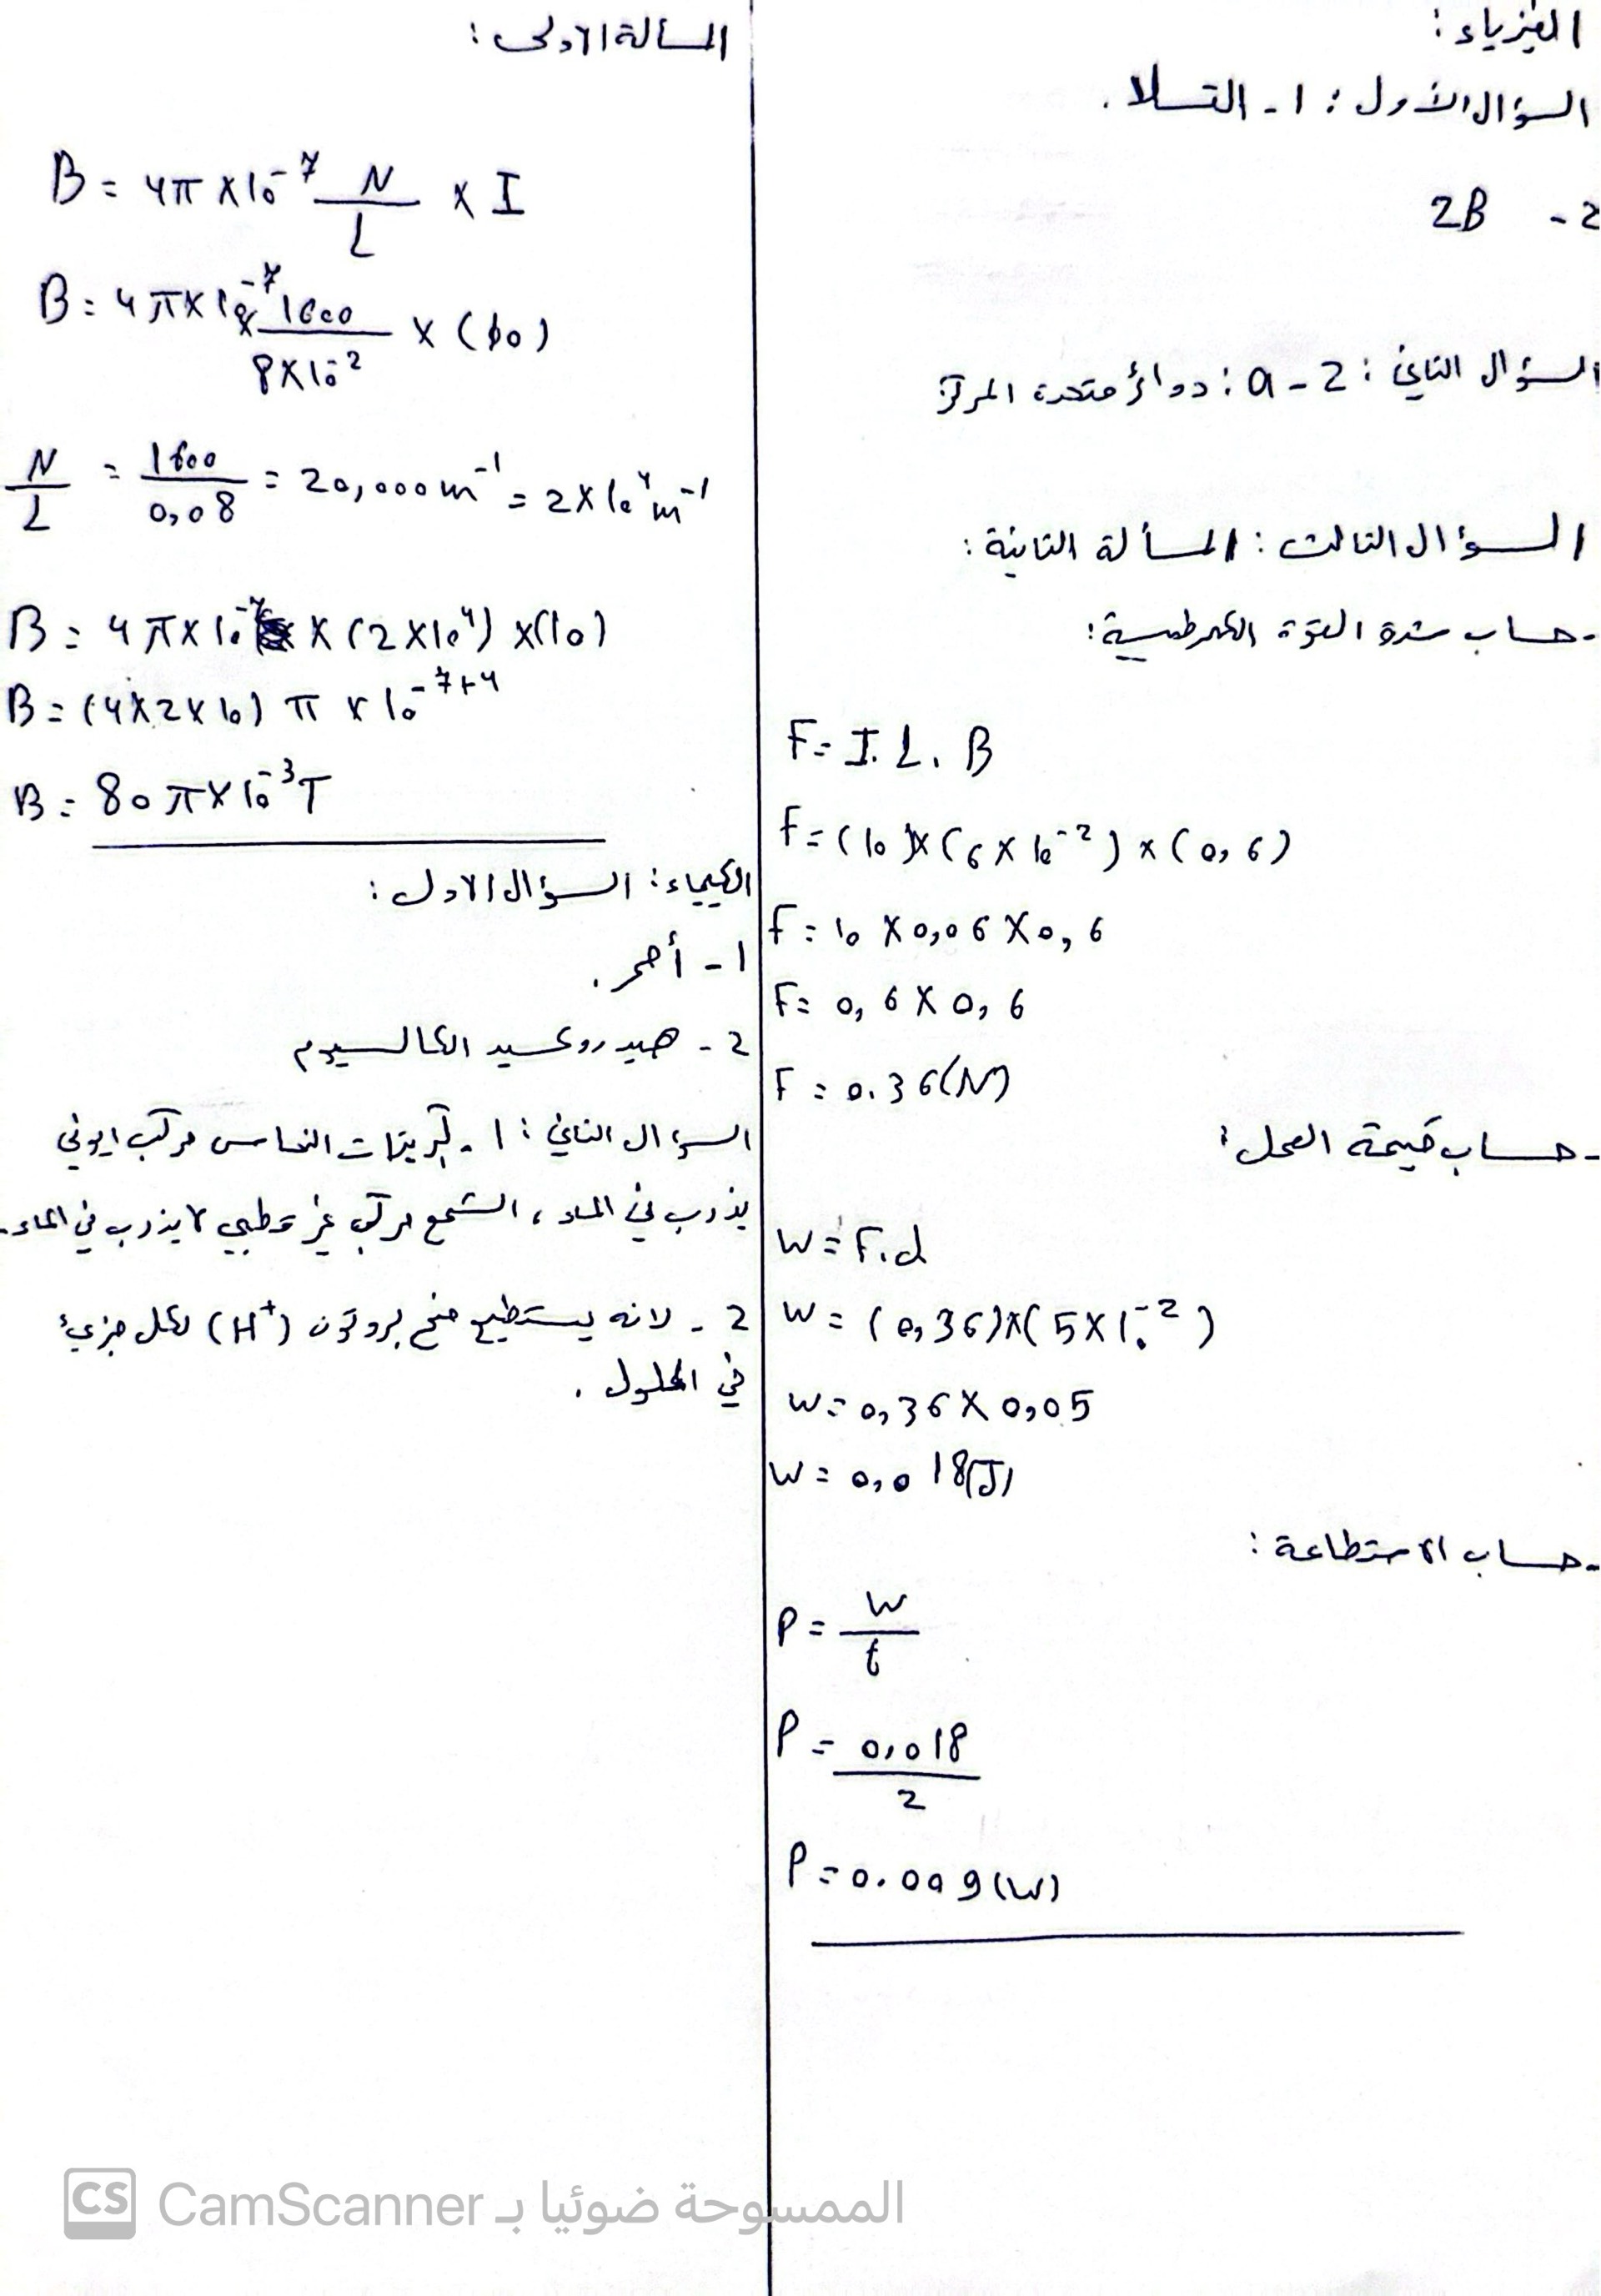 الفيزياء :
السؤال الأول : 1 - التسلا .
2 - 2B
السؤال الثاني : 2 - a : دوائر متحدة المركز
السؤال الثالث : المسألة الثانية :
- حساب شدة القوة الكهرطيسية :
F = I. L. B
F = (10) × (6 × 10⁻²) × (0,6)
F = 10 × 0,06 × 0,6
F = 0,6 × 0,6
F = 0.36(N)
- حساب قيمة العمل :
W = F.d
W = (0,36) × (5 × 10⁻²)
W = 0,36 × 0,05
W = 0,018(J)
- حساب الاستطاعة :
P = W / t
P = 0,018 / 2
P = 0.009(W)
المسألة الاولى :
B = 4π × 10⁻⁷ N / L × I
B = 4π × 10⁻⁷ × 1600 / 8 × 10⁻² × (10)
N / L = 1600 / 0,08 = 20,000 m⁻¹ = 2 × 10⁴ m⁻¹
B = 4π × 10⁻⁷ × (2 × 10⁴) × (10)
B = (4 × 2 × 10) π × 10⁻⁷⁺⁴
B = 80 π × 10⁻³ T
الكيمياء : السؤال الاول :
1 - أحمر .
2 - هيدروكسيد الكالسيوم
السؤال الثاني : 1 - كبريتات النحاس مركب ايوني
يذوب في الماء ، الشمع مركب غير قطبي لا يذوب في الماء .
2 - لانه يستطيع منح بروتون (H⁺) لكل جزيء
في المحلول .
CS CamScanner الممسوحة ضوئيا بـ